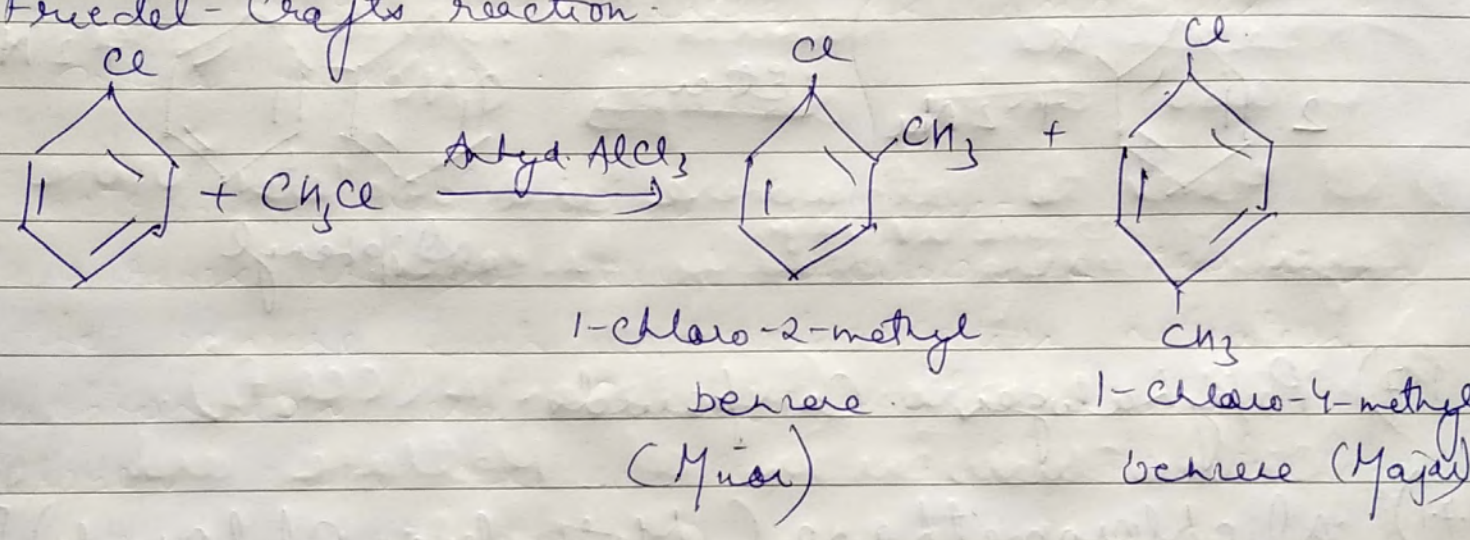 Friedel-Crafts reaction.
Cl Cl Cl.
+ CH3Cl Anhyd. AlCl3 CH3 +
CH3
1-chloro-2-methyl
benzene.
(Minor)
1-Chloro-4-methyl
benzene (Major)